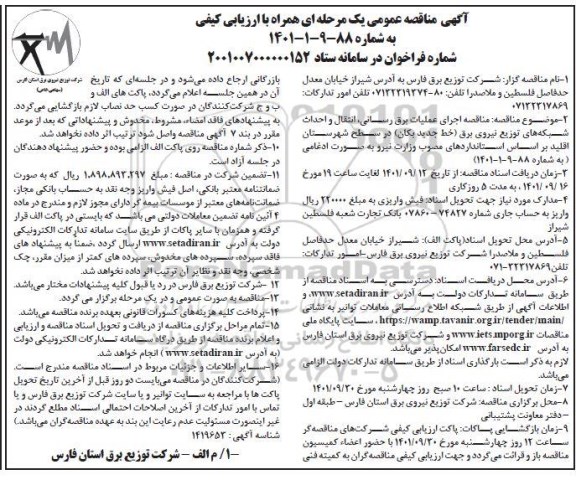 آگهی مناقصه عمومی یک مرحله ای همراه با ارزیابی کیفی
به شماره ۸۸-۹-۱-۱۴۰۱
شماره فراخوان در سامانه ستاد ۲۰۰۱۰۰۷۰۰۰۰۰۰۱۵۲
شرکت توزیع نیروی برق استان فارس
۱-نام مناقصه گزار: شرکت توزیع برق فارس به آدرس شیراز خیابان معدل
حدفاصل فلسطین و ملاصدرا تلفن: ۸۰-۰۷۱۳۲۳۱۹۳۷۴ تلفن امور تدارکات:
۰۷۱۳۲۳۱۷۸۶۹
۲-موضوع مناقصه: مناقصه اجرای عملیات برق رسانی، انتقال و احداث
شبکه‌های توزیع نیروی برق (خط جدید یکان) در سطح شهرستان
اقلید بر اساس استانداردهای مصوب وزارت نیرو به صورت ادغامی
( به شماره ۸۸-۹-۱-۱۴۰۱)
۳-زمان دریافت اسناد مناقصه: از تاریخ ۱۴۰۱/۰۹/۱۲ لغایت ساعت ۱۹ مورخ
۱۴۰۱/۰۹/۱۶ ، به مدت ۵ روزکاری
۴-مدارک مورد نیاز جهت تحویل اسناد: فیش واریزی به مبلغ ۲۲۰۰۰۰ ریال
واریز به حساب جاری شماره ۷۴۸۲۷-۰۷۸۶۰ بانک تجارت شعبه فلسطین
شیراز
۵-آدرس محل تحویل اسناد(پاکت الف): شیراز خیابان معدل حدفاصل
فلسطین و ملاصدرا شرکت توزیع نیروی برق فارس-امور تدارکات:
تلفن۳۲۳۱۷۸۶۹-۰۷۱
۶-آدرس محل دریافت اسناد: دسترسی به اسناد مناقصه از
طریق سامانه تدارکات دولت به آدرس www.setadiran.ir، و
اطلاعات آگهی از طریق شبکه اطلاع رسانی معاملات توانیر به نشانی
https://wamp.tavanir.org.ir/tender/main/ ، سایت پایگاه ملی
مناقصات www.iets.mporg.ir و شرکت توزیع نیروی برق استان فارس
به آدرس www.farsedc.ir امکان‌پذیر می‌باشد.
لازم به ذکر است بارگذاری اسناد از طریق سامانه تدارکات دولت الزامی
می‌باشد.
۷-زمان تحویل اسناد : ساعت ۱۰ صبح روز چهارشنبه مورخ ۱۴۰۱/۰۹/۳۰
۸-محل برگزاری مناقصه: شرکت توزیع نیروی برق استان فارس - طبقه اول
-دفتر معاونت پشتیبانی
۹-زمان بازگشایی پاکات: پاکت ارزیابی کیفی شرکت‌های مناقصه‌گر
ساعت ۱۲ روز چهارشنبه مورخ ۱۴۰۱/۰۹/۳۰ با حضور اعضاء کمیسیون
مناقصه باز و قرائت می‌گردد و جهت ارزیابی کیفی مناقصه‌گران به کمیته فنی
بازرگانی ارجاع داده می‌شود و در جلسه‌ای که تاریخ
آن در همین جلسه اعلام می‌گردد، پاکت های الف و
ب و ج شرکت‌کنندگان در صورت کسب حد نصاب لازم بازگشایی می‌گردد.
به پیشنهادهای فاقد امضاء، مشروط، مخدوش و پیشنهاداتی که بعد از موعد
مقرر در بند ۷ آگهی مناقصه واصل شود ترتیب اثر داده نخواهد شد.
۱۰-ذکر شماره مناقصه روی پاکت الف الزامی بوده و حضور پیشنهاد دهندگان
در جلسه آزاد است.
۱۱-تضمین شرکت در مناقصه : مبلغ ۱,۸۹۸,۸۹۳,۲۹۷ ریال که به صورت
ضمانتنامه معتبر بانکی، اصل فیش واریز وجه نقد به حساب بانکی مجاز،
ضمانت‌نامه‌های معتبر از موسسات بیمه گر دارای مجوز لازم و مندرج در ماده
۴ آئین نامه تضمین معاملات دولتی می باشد که بایستی در پاکت الف قرار
گرفته و همزمان با سایر پاکات از طریق سایت سامانه تدارکات الکترونیکی
دولت به آدرس www.setadiran.ir ارسال گردد .ضمناً به پیشنهاد های
فاقد سپرده، سپرده های مخدوش، سپرده های کمتر از میزان مقرر، چک
شخصی، وجه نقد و نظایر آن ترتیب اثر داده نخواهد شد.
۱۲ -شرکت توزیع برق فارس در رد یا قبول کلیه پیشنهادات مختار می‌باشد.
۱۳-مناقصه به صورت عمومی و در یک مرحله برگزار می گردد.
۱۴-پرداخت کلیه هزینه‌های کسورات قانونی بعهده برنده مناقصه می‌باشد.
۱۵-تمام مراحل برگزاری مناقصه از دریافت و تحویل اسناد مناقصه و ارزیابی
و اعلام برنده مناقصه از طریق درگاه سامانه تدارکات الکترونیکی دولت
(به آدرس www.setadiran.ir ) انجام خواهد شد.
۱۶-سایر اطلاعات و جزئیات مربوط در اسناد مناقصه مندرج است.
(شرکت‌کنندگان در مناقصه می‌بایست دو روز قبل از آخرین تاریخ تحویل
پاکت ها با مراجعه به سایت توانیر و یا سایت شرکت توزیع برق فارس و یا
تماس با امور تدارکات از آخرین اصلاحات احتمالی اسناد مطلع گردند در
غیر اینصورت مسئولیت عدم رعایت این بند به عهده مناقصه‌گران می‌باشد.)
شناسه آگهی : ۱۴۱۹۶۵۳
۱/ م الف - شرکت توزیع برق استان فارس